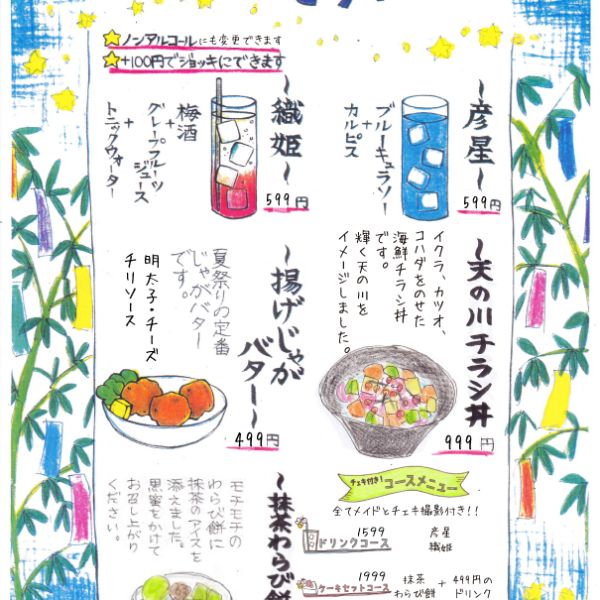 ★ノンアルコールにも変更できます
★+100円でジョッキにできます
~彦星~
ブルーキュラソー
+
カルピス
599円
~織姫~
梅酒
+
グレープフルーツ
ジュース
+
トニックウォーター
599円
~天の川チラシ丼~
イクラ、カツオ、
コハダをのせた
海鮮チラシ丼
です。
輝く天の川を
イメージしました。
999円
~揚げじゃが
バター~
夏祭りの定番
じゃがバター
です。
明太子・チーズ
チリソース
499円
~抹茶わらび餅
モチモチの
わらび餅に
抹茶のアイスを
添えました。
黒蜜をかけて
お召し上がり
ください。
チェキ付き!コースメニュー
全てメイドとチェキ撮影付き!!
1599
ドリンクコース
彦星
織姫
1999
ケーキセットコース
抹茶
わらび餅
+
499円の
ドリンク